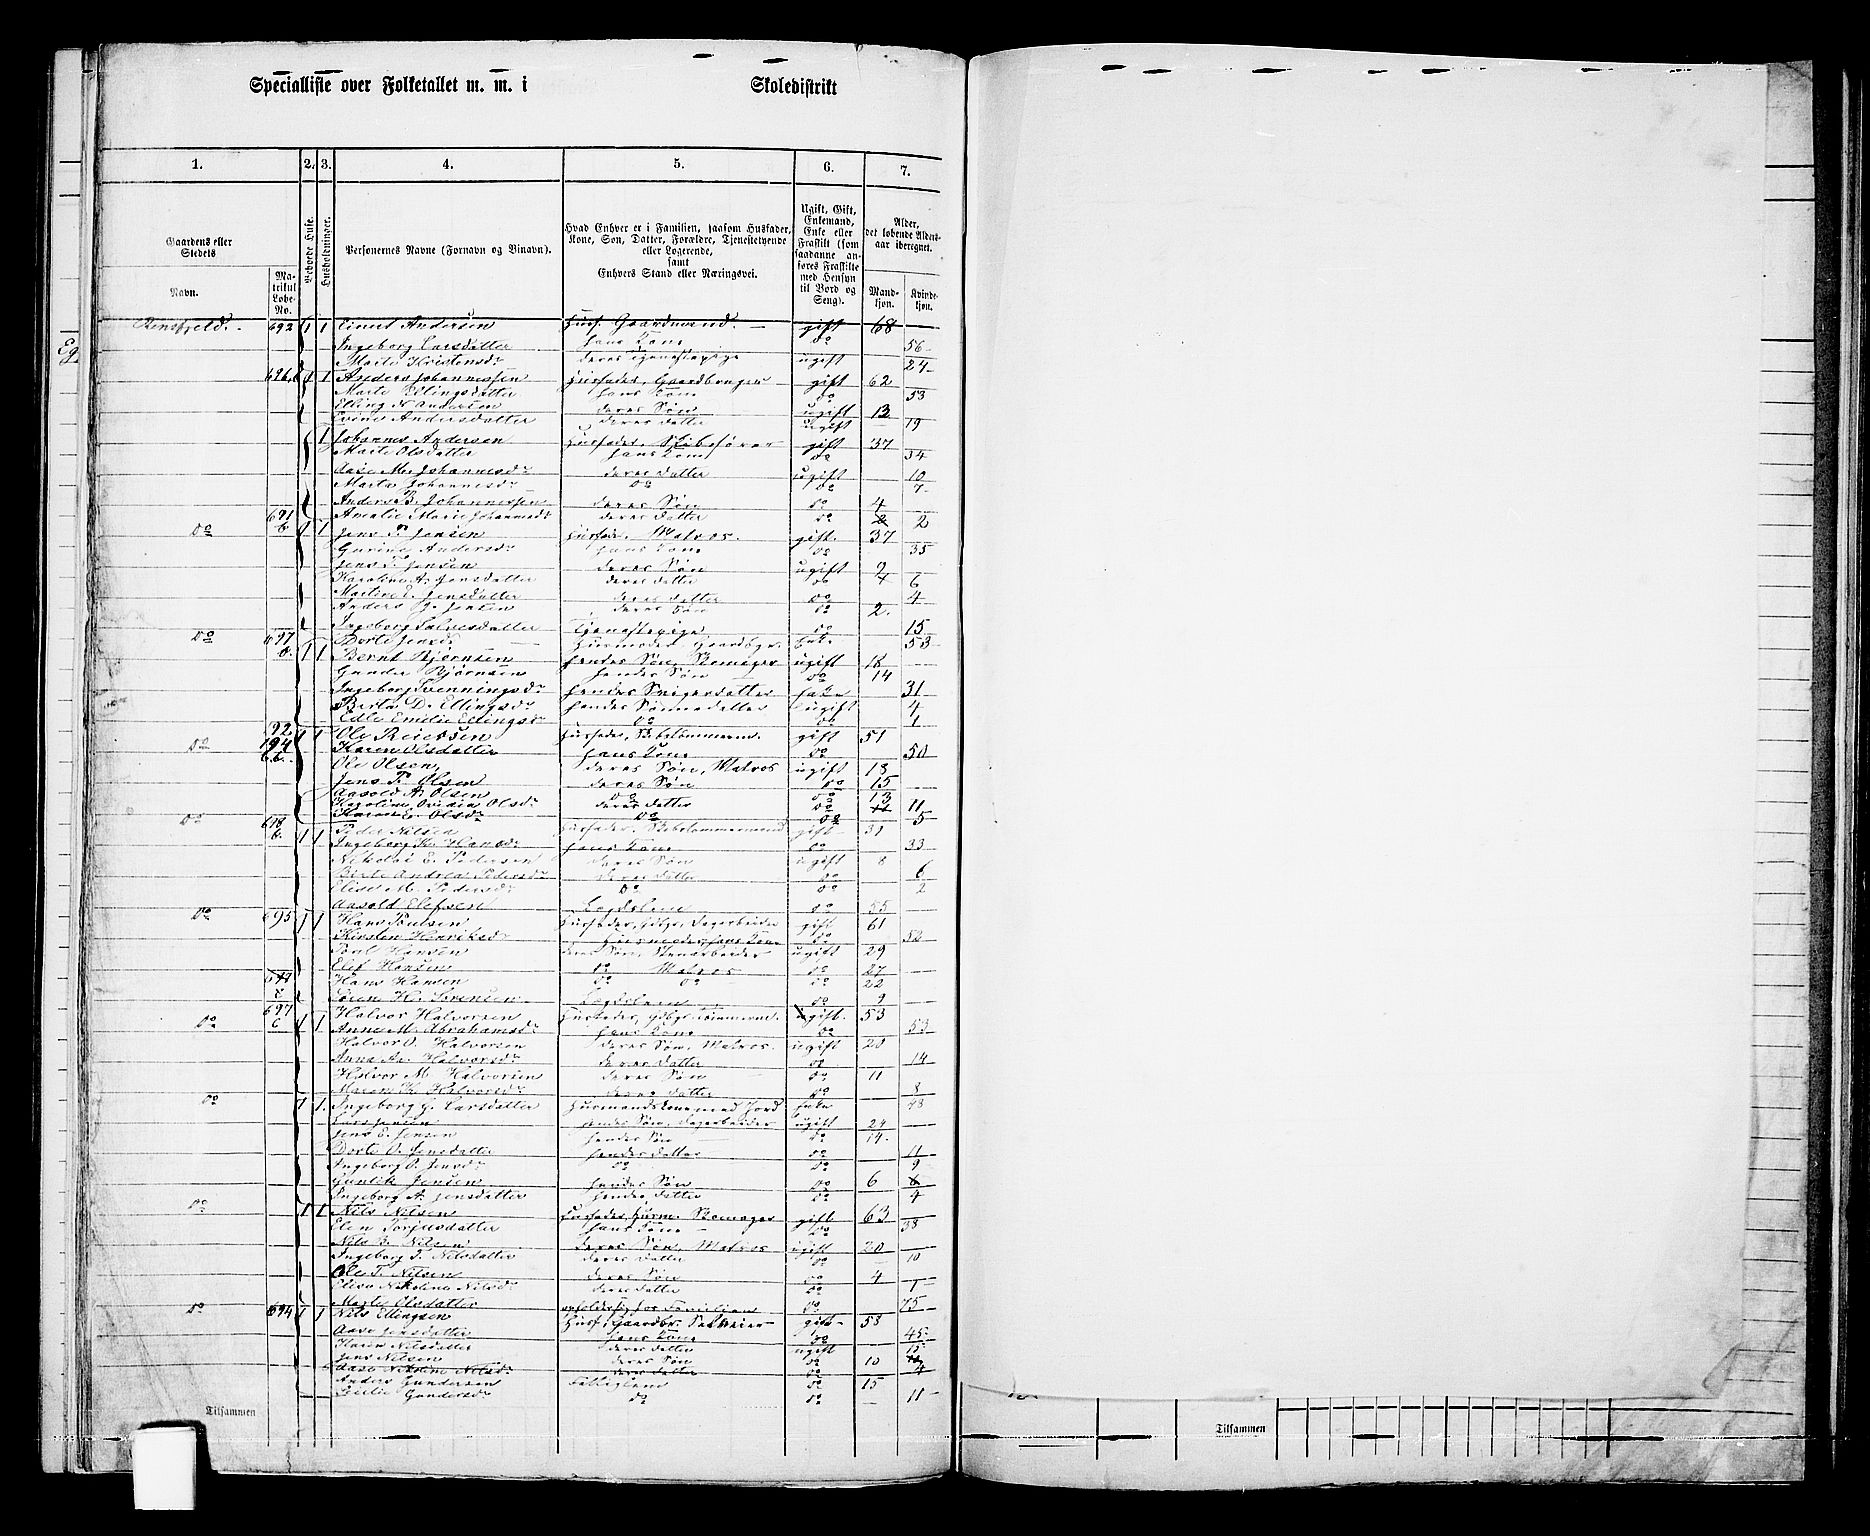 Specialliste over Folketallet m. m. i Skoledistrikt
1. 2. 3. 4. 5. 6. 7.
Gaardens eller Stedets
Navn.
Matrikul Løbe-No.
Beboede Huse.
Husholdninger.
Personernes Navne (Fornavn og Binavn).
Hvad Enhver er i Familien, saasom Husfader, Kone, Søn, Datter, Forældre, Tjenestetyende eller Logerende, samt Enhvers Stand eller Næringsvei.
Ugift, Gift, Enkemand, Enke eller Fraskilt (som saadanne anføres Fraskilte med Hensyn til Bord og Seng).
Alder, det løbende Alders-aar iberegnet.
Mandkjøn. Kvindekjøn.
692 1 1 Andersen Husf. Gaardmand. gift 68
Ingeborg Larsdatter hans Kone do 56
Marte Kristensdr deres Tjenestepige ugift 24
696 1 1 Anders Johannessen Husfader, Gaardbruger gift 62
Marte Ellingsdatter hans Kone do 53
Elling N. Andersen deres Søn ugift 13
Andersdatter deres Datter ugift 19
1 Johannes Andersen Husfader, Skibsfører gift 37
Marte Olsdatter hans Kone do 34
Aase M. Johannesdr deres Datter ugift 10
Marta Johannesdr do do 7
Anders B. Johannessen deres Søn do 4
Amalie Marie Johannesdr deres Datter do 2
do 691 b 1 1 Jens T. Jensen Husfader, Matros. gift. 37
Gurine Andersdr hans Kone do 35
Jens T. Jensen deres Søn ugift
Karoline A. Jensdatter deres Datter do 6
Martine E. Jensdatter deres Datter do 4
Anders J. Jensen deres Søn do 2
Ingeborg Salvesdatter Tjenestepige do 15
do 697 b. 1 1 Dorte Jensd. Husmoder Gaardbgr. Enke 53
Bernt Bjørnsen hendes Søn, Skomager ugift 18
Gunder Bjørnsen hendes Søn do 14
Ingeborg Svenningsdr hendes Svigerdatter Enke 31
Berta D. Ellingsdr hendes Sønnedatter ugift 4
Edle Emilie Ellingsdr do do 1
do 1 1 Ole Reiersen Husfader, Skibstømmerm. gift 51
Karen Olsdatter hans Kone do 50
Ole Olsen deres Søn, Matros ugift 18
Jens T. Olsen deres Søn do 15
Aasold A. Olsen do do 13
Karoline Ovidia Olsdr deres Datter do 11
Karen E. Olsdr do do 5
do 698 b. 1 1 Peder Nilsen Husfader, Skibstømmermand gift 31
Ingeborg K. Hansdr hans Kone do 33
Nikolai E. Pedersen deres Søn ugift 8
Birte Andrea Pedersdr deres Datter do 6
Elise M. Pedersdr do do 2
Aasold Elefsen Lægdslem do 55
do 695 1 1 Hans Poulsen Husfader, Gdbgr, Dagarbeider gift 61
Kirsten Henriksdr Husmoder, hans Kone do 52
Poul Hansen deres Søn, Stenarbeider ugift 29
Elef Hansen do Matros do 27
Hans Hansen do do do 22
Søren H. Sørensen Lægdslem do 9
do 697 c 1 1 Halvor Halvorsen Husfader, Gdbgr. Tømmerm. gift. 53
Anne M. Abrahamsdr hans Kone do 53
Halvor O. Halvorsen deres Søn, Matros. ugift 20
Anna A. Halvorsdr deres Datter do 14
Halvor M. Halvorsen deres Søn do 11
Maren K. Halvorsdr deres Datter do 8
do 1 1. Ingeborg G. Larsdatter Husmandskone med Jord Enke 48
Lars Jensen hendes Søn, Dagarbeider ugift 24
Jens E. Jensen hendes Søn do 14.
Dorte O. Jensdatter hendes Datter do 11
Ingeborg O. Jensdr do do 9
Gunlik Jensen hendes Søn do 6
Ingeborg A. Jensdatter hendes Datter do 4
do 1 1 Nils Nilsen Husfader, Husm. Skomager gift 63
Elen Torjusdatter hans Kone do 38
Nils B. Nilsen deres Søn, Matros ugift 20
Ingeborg T. Nilsdatter deres Datter do 10
Ole T. Nilsen deres Søn do 4
Elisa Nikoline Nilsdr deres Datter do 1
Marte Olsdatter opholder sig hos Familien do 75
do 694 1 1 Nils Ellingsen Husf. Gaardbr. gift 58
Aase Jensdatter hans Kone do 45
Karen Nilsdatter deres Datter ugift 15
Jens Nilsen deres Søn do 10
Aase Nikoline Nilsdr deres Datter do 4
Anders Gundersen Fattiglem do 15
Gundersdr do do 11
Tilsammen
Tilsammen